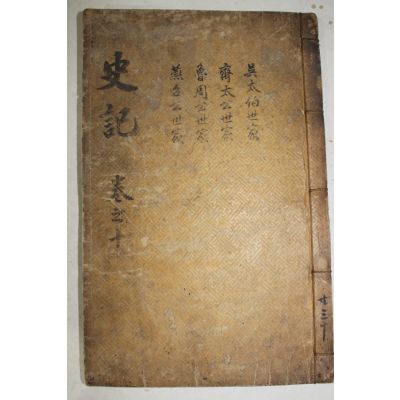 共三十
吳太伯世家
齊太公世家
魯周公世家
燕召公世家
史記 卷之十